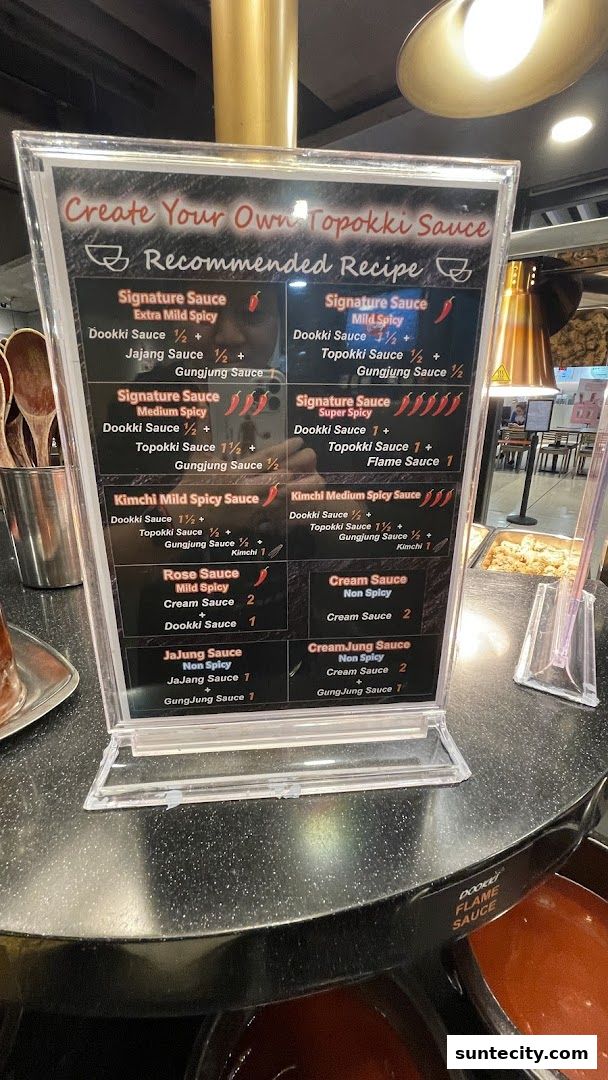 Create Your Own Topokki Sauce
Recommended Recipe
Signature Sauce
Extra Mild Spicy
Dookki Sauce ½ +
Jajang Sauce ½ +
Gungjung Sauce 1
Signature Sauce
Mild Spicy
Dookki Sauce 1½ +
Topokki Sauce ½ +
Gungjung Sauce ½
Signature Sauce
Medium Spicy
Dookki Sauce ½ +
Topokki Sauce 1½ +
Gungjung Sauce ½
Signature Sauce
Super Spicy
Dookki Sauce 1 +
Topokki Sauce 1 +
Flame Sauce 1
Kimchi Mild Spicy Sauce
Dookki Sauce 1½ +
Topokki Sauce ½ +
Gungjung Sauce ½ +
Kimchi 1
Kimchi Medium Spicy Sauce
Dookki Sauce ½ +
Topokki Sauce 1½ +
Gungjung Sauce ½ +
Kimchi 1
Rose Sauce
Mild Spicy
Cream Sauce 2
+
Dookki Sauce 1
Cream Sauce
Non Spicy
Cream Sauce 2
JaJung Sauce
Non Spicy
JaJang Sauce 1
+
GungJung Sauce 1
CreamJung Sauce
Non Spicy
Cream Sauce 2
+
GungJung Sauce 1
DOOKKI
FLAME
SAUCE
suntecity.com